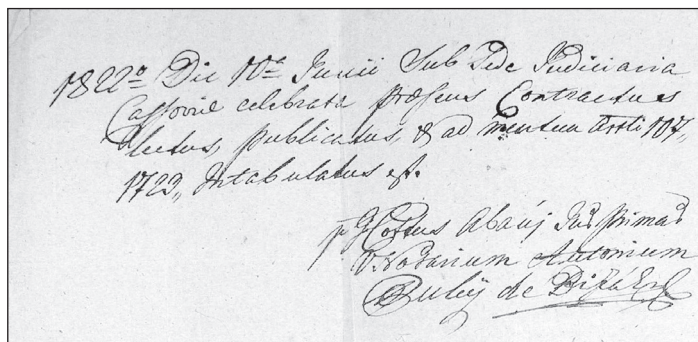 1822º Die 10ª Junii Sub Sede Judiciaria
Cassoviæ celebrata præsens Contractus
lectus, publicatus, & ad mentem Artli 107,,
1723,, Intabulatus est.
p J. Cottus Abaúj Jur. Primar
V. Notarium Antonium
de